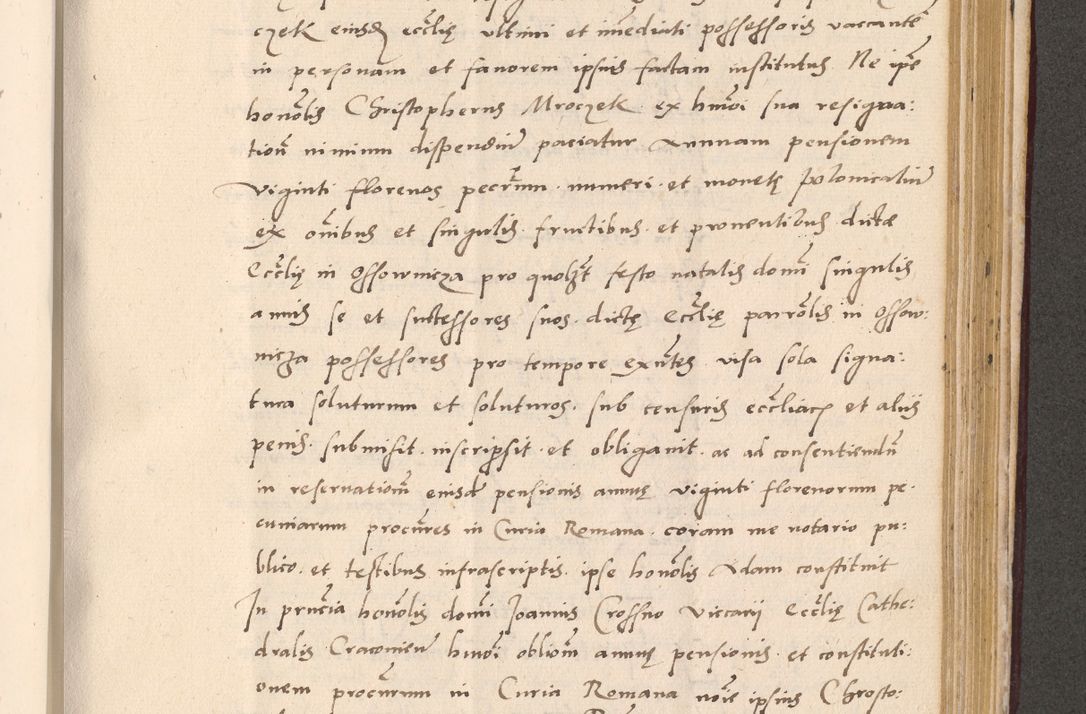 czek eiusd ecclię ultimi et imediati possessoris vaccante
in personam et favorem ipsius factam institutus Ne ipse
honolis Christopherus Mroczek ex hmoi sua resigna:
tion nimium dispendiu paciatur Annuam pensionem
viginti florenos pecrum numeri et monetę polonicaliu
ex omibus et singulis fructibus et proventibus dictæ
Ecclię in Ossownicza pro quolzt festo natalis domi singulis
annis se et successores suos dictę Ecclię parrolis in Ossow:
nicza possessores pro tempore exntes visa sola signa:
tura soluturum et soluturos sub censuris ecccliacz et aliis
penis submisit inscripsit et obligavit ac ad consentiendu
in reservationm eiusde pensionis annuę viginti florenorum pe.
cuniarum procures in Curia Romana coram me notario pu:
blico et testibus infrascriptis ipse honolis Adam constituit
In pruncia honolis domi Joannis Crossno viccarii Ecclię Cathe:
dralis Cracovien hmoi obliom annuę pensionis et constituti:
onem procurum in Curia Romana nois ipsius Christo: